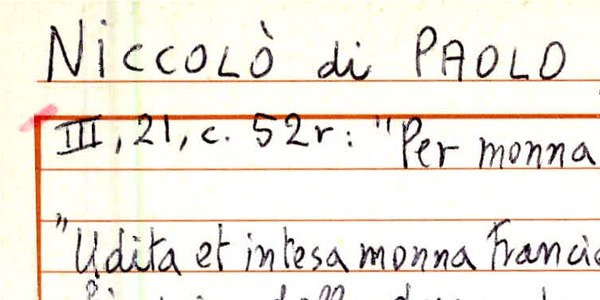 NiCCOLÒ di PAOLO
III, 21, c. 52r: "Per monna
"Udita et intesa monna